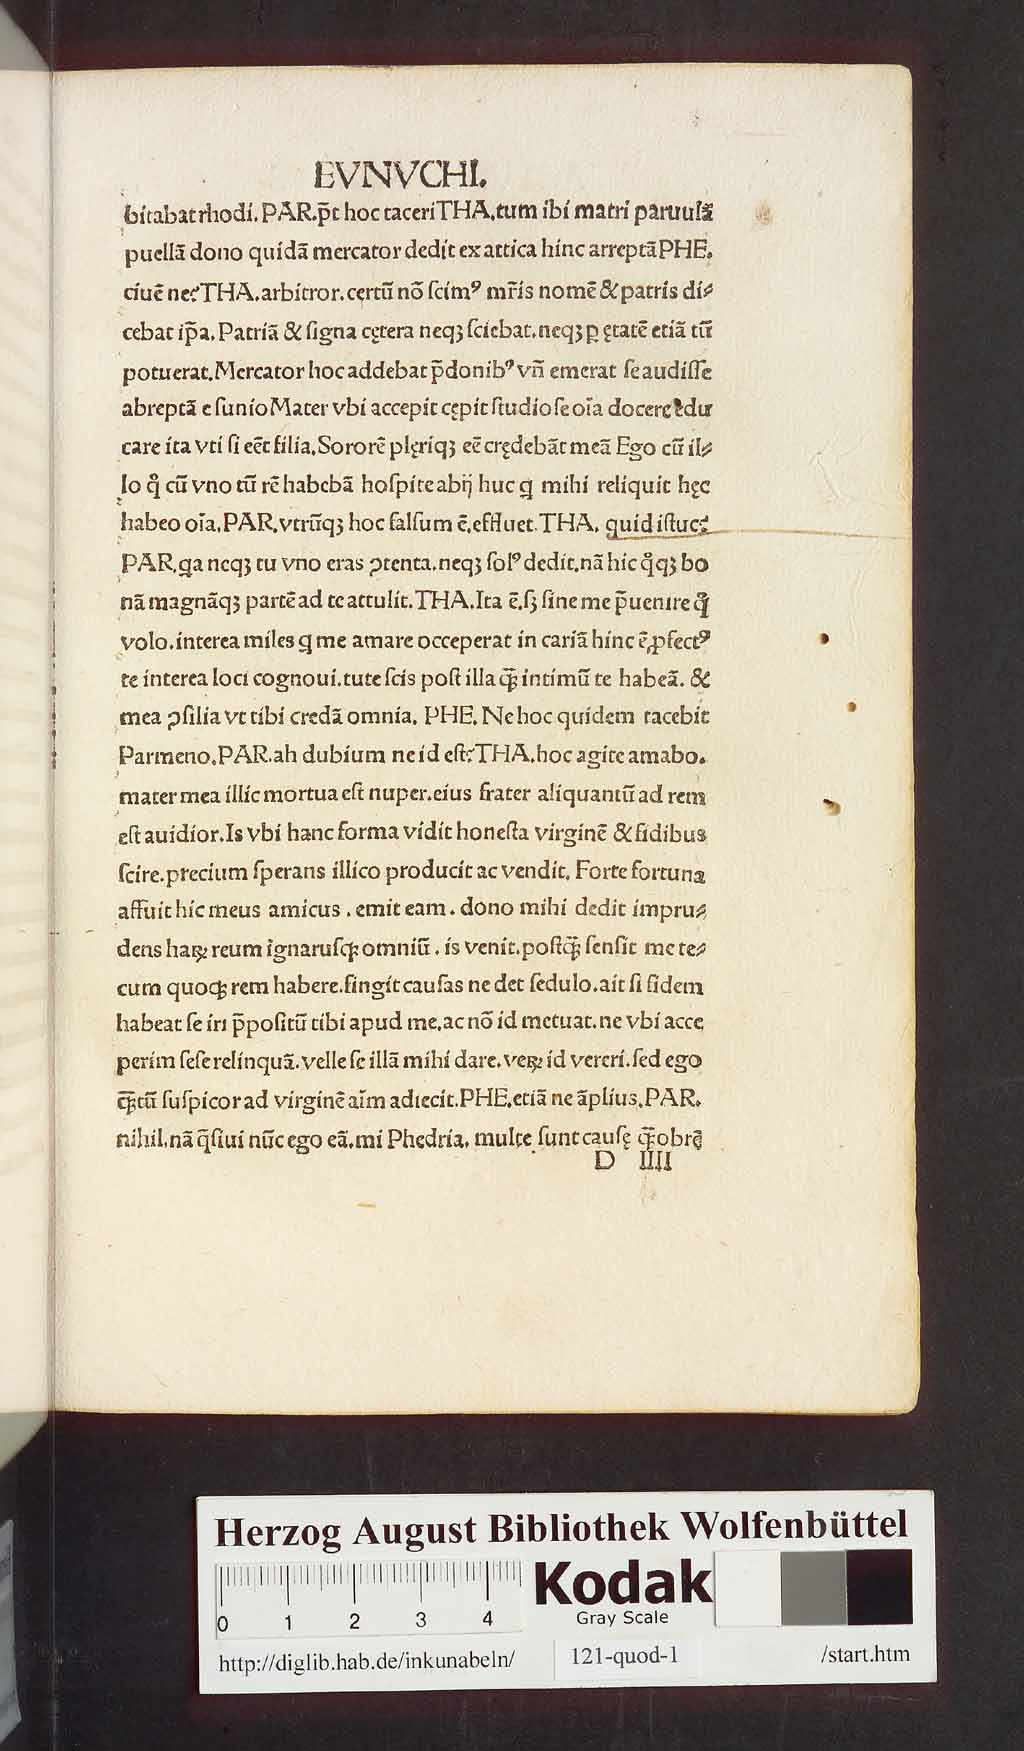 EVNVCHI.
bitabat rhodi. PAR. p̄t hoc taceri THA. tum ibi matri paruulā
puellā dono quidā mercator dedit ex attica hinc arreptā PHE.
ciuē ne? THA. arbitror. certū nō ſcimꝰ mr̄is nomē & patris di⸗
cebat ip̄a. Patriā & ſigna cętera neqꝫ ſciebat. neqꝫ ꝑ ętatē etiā tū
potuerat. Mercator hoc addebat p̄donibꝰ vn̄ emerat ſe audiſſe
abreptā e ſunio Mater vbi accepit cępit ſtudioſe oīa docere edu
care ita vti ſi eēt filia. Sororē plęriqꝫ eē crędebāt meā Ego cū il⸗
lo q̊ cū vno tū rē habebā hoſpite abij huc q mihi reliquit hęc
habeo oīa. PAR. vtrūqꝫ hoc falſum ē. effluet. THA. quid iſtuc?
PAR. qa neqꝫ tu vno eras ꝯtenta. neqꝫ ſolꝰ dedit. nā hic q̊qꝫ bo
nā magnāqꝫ partē ad te attulit. THA. Ita ē. ſꝫ ſine me p̄uenire q̊
volo. interea miles q me amare occeperat in cariā hinc ē ꝓfectꝰ
te interea loci cognoui. tute ſcis poſt illa q̄ꝫ intimū te habeā. &
mea ꝯſilia vt tibi credā omnia. PHE. Ne hoc quidem tacebit
Parmeno. PAR. ah dubium ne id eſt? THA. hoc agite amabo.
mater mea illic mortua eſt nuper. eius frater aliquantū ad rem
eſt auidior. Is vbi hanc forma vidit honeſta virginē & fidibus
ſcire. precium ſperans illico producit ac vendit. Forte fortuna
affuit hic meus amicus . emit eam . dono mihi dedit impru⸗
dens haꝝ reum ignaruſqꝫ omniū . is venit. poſtq̄ꝫ ſenſit me te⸗
cum quoqꝫ rem habere. fingit cauſas ne det ſedulo. ait ſi fidem
habeat ſe iri p̄poſitū tibi apud me. ac nō id metuat. ne vbi acce
perim ſeſe relinquā. velle ſe illā mihi dare. veꝝ id vereri. ſed ego
q̄ꝫtū ſuſpicor ad virginē aīm adiecit. PHE. etiā ne āplius. PAR.
nihil. nā q̄ſiui nūc ego eā. mi Phedria. multe ſunt cauſę q̄ꝫobrē
D IIII
Herzog August Bibliothek Wolfenbüttel
0 1 2 3 4
Kodak
Gray Scale
http://diglib.hab.de/inkunabeln/ 121-quod-1 /start.htm